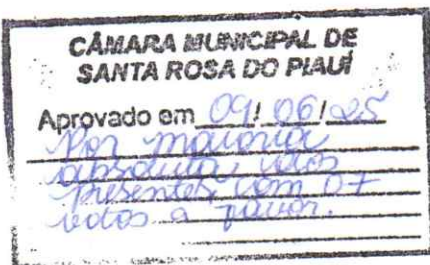 CÂMARA MUNICIPAL DE
SANTA ROSA DO PIAUÍ
Aprovado em 09/06/25
Por maioria
absoluta, dos
presentes, com 07
votos a favor.